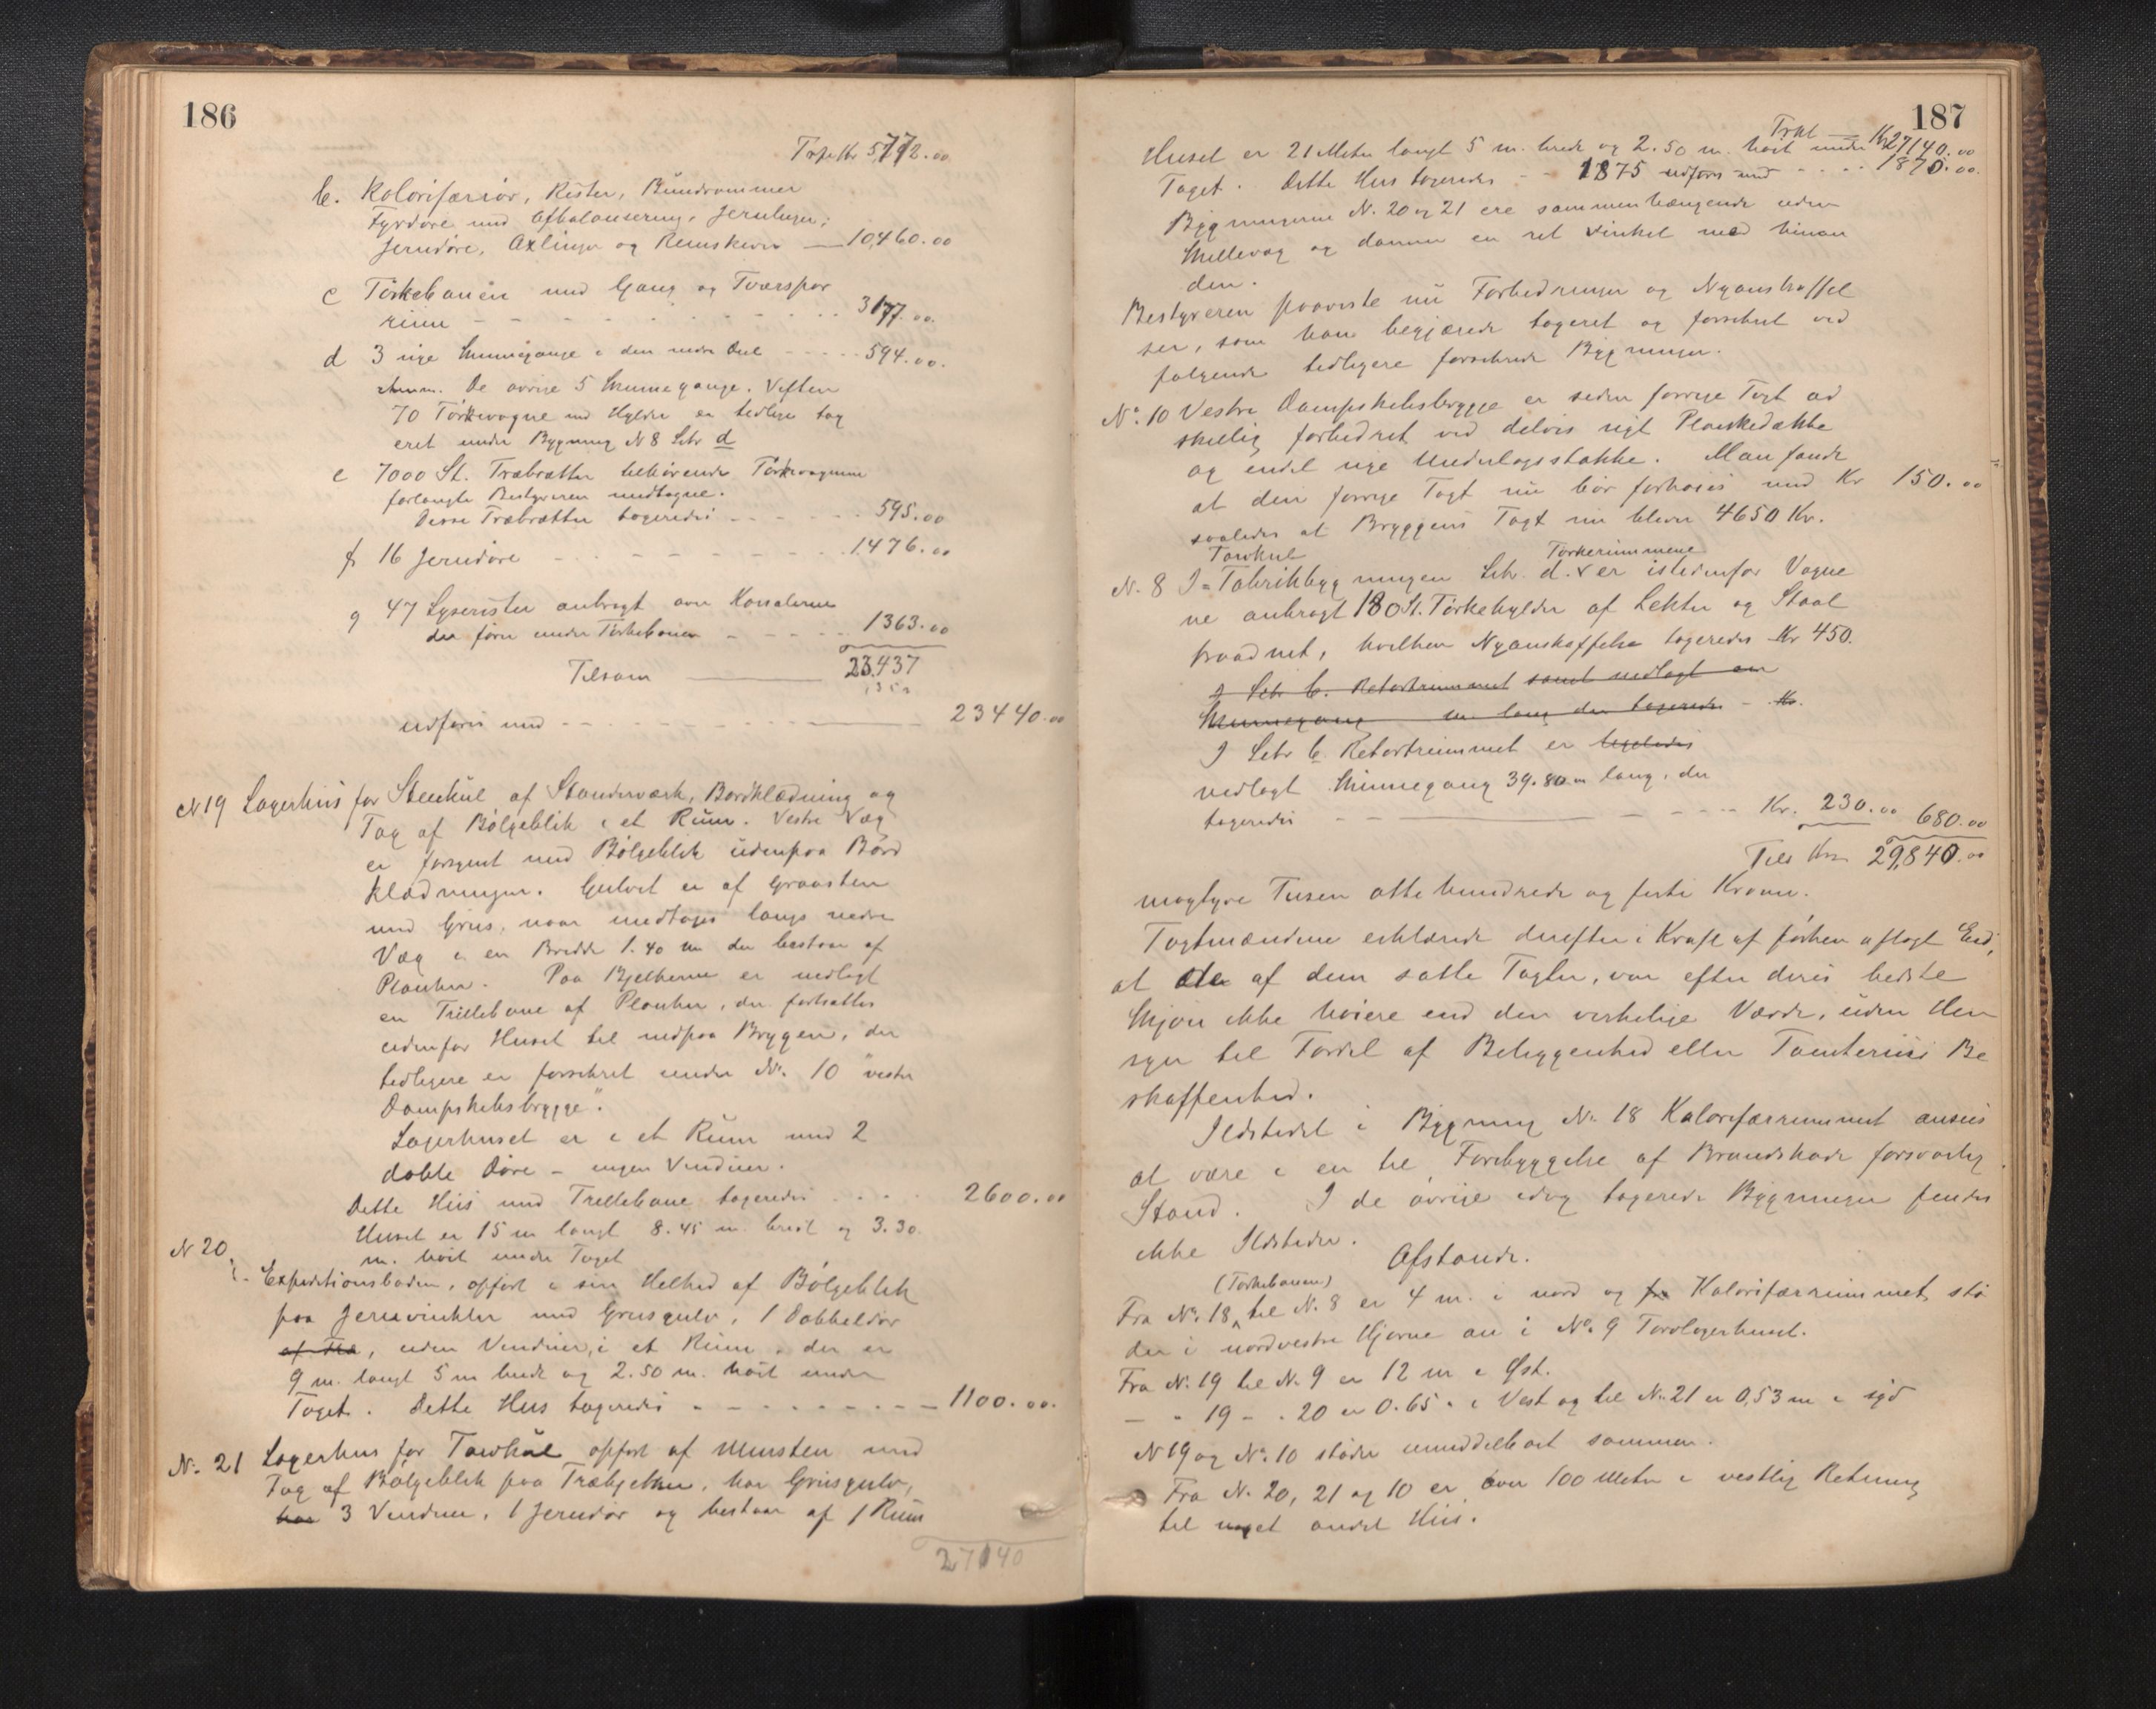 186
Trpt Kr 5,772.00
b. Kalorifærrør, Rister, Bundrammer
Fyrdøre med Afbalansering, Jernluger,
Jerndøre, Axlinger og Remskiver — 10,460.00
c Törkebanen med Gang og Tværspor
rium - - - - - 3177.00
d 3 nye Skinnegange i den nedre Deel - - - 594.00
Anm. De øvrige 5 Skinnegange. Viften
70 Törkevogne med Hylder er tidligere tag
eret under Bygning N 8 Litr d
e 7000 St. Træbrætter tilhörende Törkevognene
forlangte Bestyreren medtagne.
Disse Træbrætter tageredes - - - - 595.00
f 16 Jerndöre - - - - - 1476.00
g 47 Lyserister anbragt over Kanalerne
der fører under Törkebanen - - - - 1363.00
Tilsam — 23.437
udføres med - - - — 23440.00
N 19 Lagerhus for Steenkul af Standerværk, Bordklædning og
Tag af Bölgeblik i et Rum. Vestre Væg
er forsynet med Bölgeblik udenpaa Bord
klædningen. Gulvet er af Graasten
med Grus, naar undtages langs nedre
Væg i en Bredde 1.40 m der bestaar af
Planker. Paa Bjelkerne er nedlagt
en Trillebane af Planker, der fortsættes
udenfor Huset til nedpaa Bryggen, der
tidligere er forsikret under No. 10 "vestre
Dampskibsbrygge".
Lagerhuset er i et Rum med 2
doble Døre – ingen Vinduer.
Dette Hus med Trillebane tageredes . . . . 2600.00
Huset er 15 m langt 8.45 m. bredt og 3.30
m. höit under Taget
N 20
Expeditionsboden, opført i sin Helhed af Bölgeblik
paa Jernvinkler med Grusgulv, 1 Dobbeldør
af Træ, uden Vinduer, i et Rum, der er
9 m. langt 5 m bredt og 2.50 m. höit under
Taget. Dette Hus tageredes - - - - - 1100.00.
No. 21 Lagerhus for Torvkul opført af Mursten med
Tag af Bölgeblik paa Træbjelker, har Grusgulv,
har 3 Vinduer, 1 Jerndør og bestaar af 1 Rum
27140
187
Trpt — Kr 27140.00
Huset er 21 Meter langt 5 m. bredt og 2.50 m. höit under
Taget. Dette Hus tageredes - - 1875 udføres med - - - - 1870.00.
Bygningerne N. 20 og 21 ere sammenhængende uden
Skillevæg og danner en ret Vinkel med hinan
den.
Bestyreren paaviste nu Forbedringer og Nyanskaffel
ser, som han begjærede tageret og forsikret ved
følgende tidligere forsikrede Bygninger.
No. 10 Vestre Dampskibsbrygge er siden forrige Taxt ad
skillig forbedret ved delvis nyt Plankedække
og endel nye Underlagsstokke. Man fandt
at den forrige Taxt nu bör forhøies med Kr 150.00
saaledes at Bryggens Taxt nu bliver 4650 Kr.
Torvkul Törkerummene
N. 8 I Fabrikbygningen Litr. d. er istedenfor Vogne
ne anbragt 180 St. Törkehylder af Lekter og Staal
traadnet, hvilken Nyanskaffelse tageredes Kr 450.
I Litr b. Retortrummet samt nedlagt en
Skinnegang m lang der tageredes - Kr.
I Litr b Retortrummet er ligeledes
nedlagt Skinnegang 39.80 m lang, der
tageredes - - — - - - - Kr. 230.00 680.00
Tils Kr 29,840.00
niogtyve Tusen otte hundrede og firti Kroner.
Taxtmændene erklærede derefter i Kraft af førhen aflagt Eed,
at de af dem satte Taxter, var efter deres bedste
Skjøn ikke høiere end den virkelige Værdi, uden Hen
syn til Fordel af Beliggenhed eller Tomternes Be
skaffenhed.
Ildstedet i Bygning No 18 Kalorifærrummet ansees
at være i en til Forebyggelse af Brandskade forsvarlig
Stand. I de øvrige idag tagerede Bygninger findes
ikke Ildsteder.
Afstande.
(Törkebanen)
Fra No. 18 til N. 8 er 4 m. i nord og fra Kalorifærrummet, stø
der i nordvestre Hjørne an i No. 9 Torvlagerhuset.
Fra N. 19 til N. 9 er 12 m i Øst.
— " 19 - . 20 er 0.65 " i Vest og til No 21 er 0,53 m i syd
N 19 og No. 10 støder umiddelbart sammen.
Fra N. 20, 21 og 10 er over 100 Meter i vestlig Retning
til noget andet Hus.